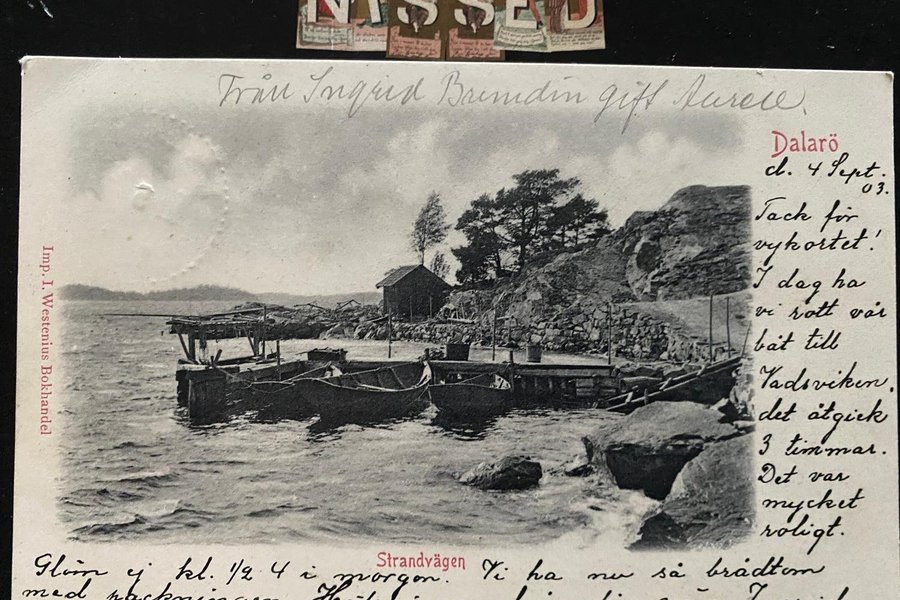 NISSED
Från Ingrid Brundin gift Aurell.
Dalarö
d. 4 Sept.
03.
Tack för
vykortet!
I dag ha
vi rott vår
båt till
Vadsviken.
det åtgick
3 timmar.
Det var
mycket
roligt.
Imp. I. Westenius Bokhandel
Strandvägen
Glöm ej kl. 1/2 4 i morgon. Vi ha nu så brådtom
med packningen.